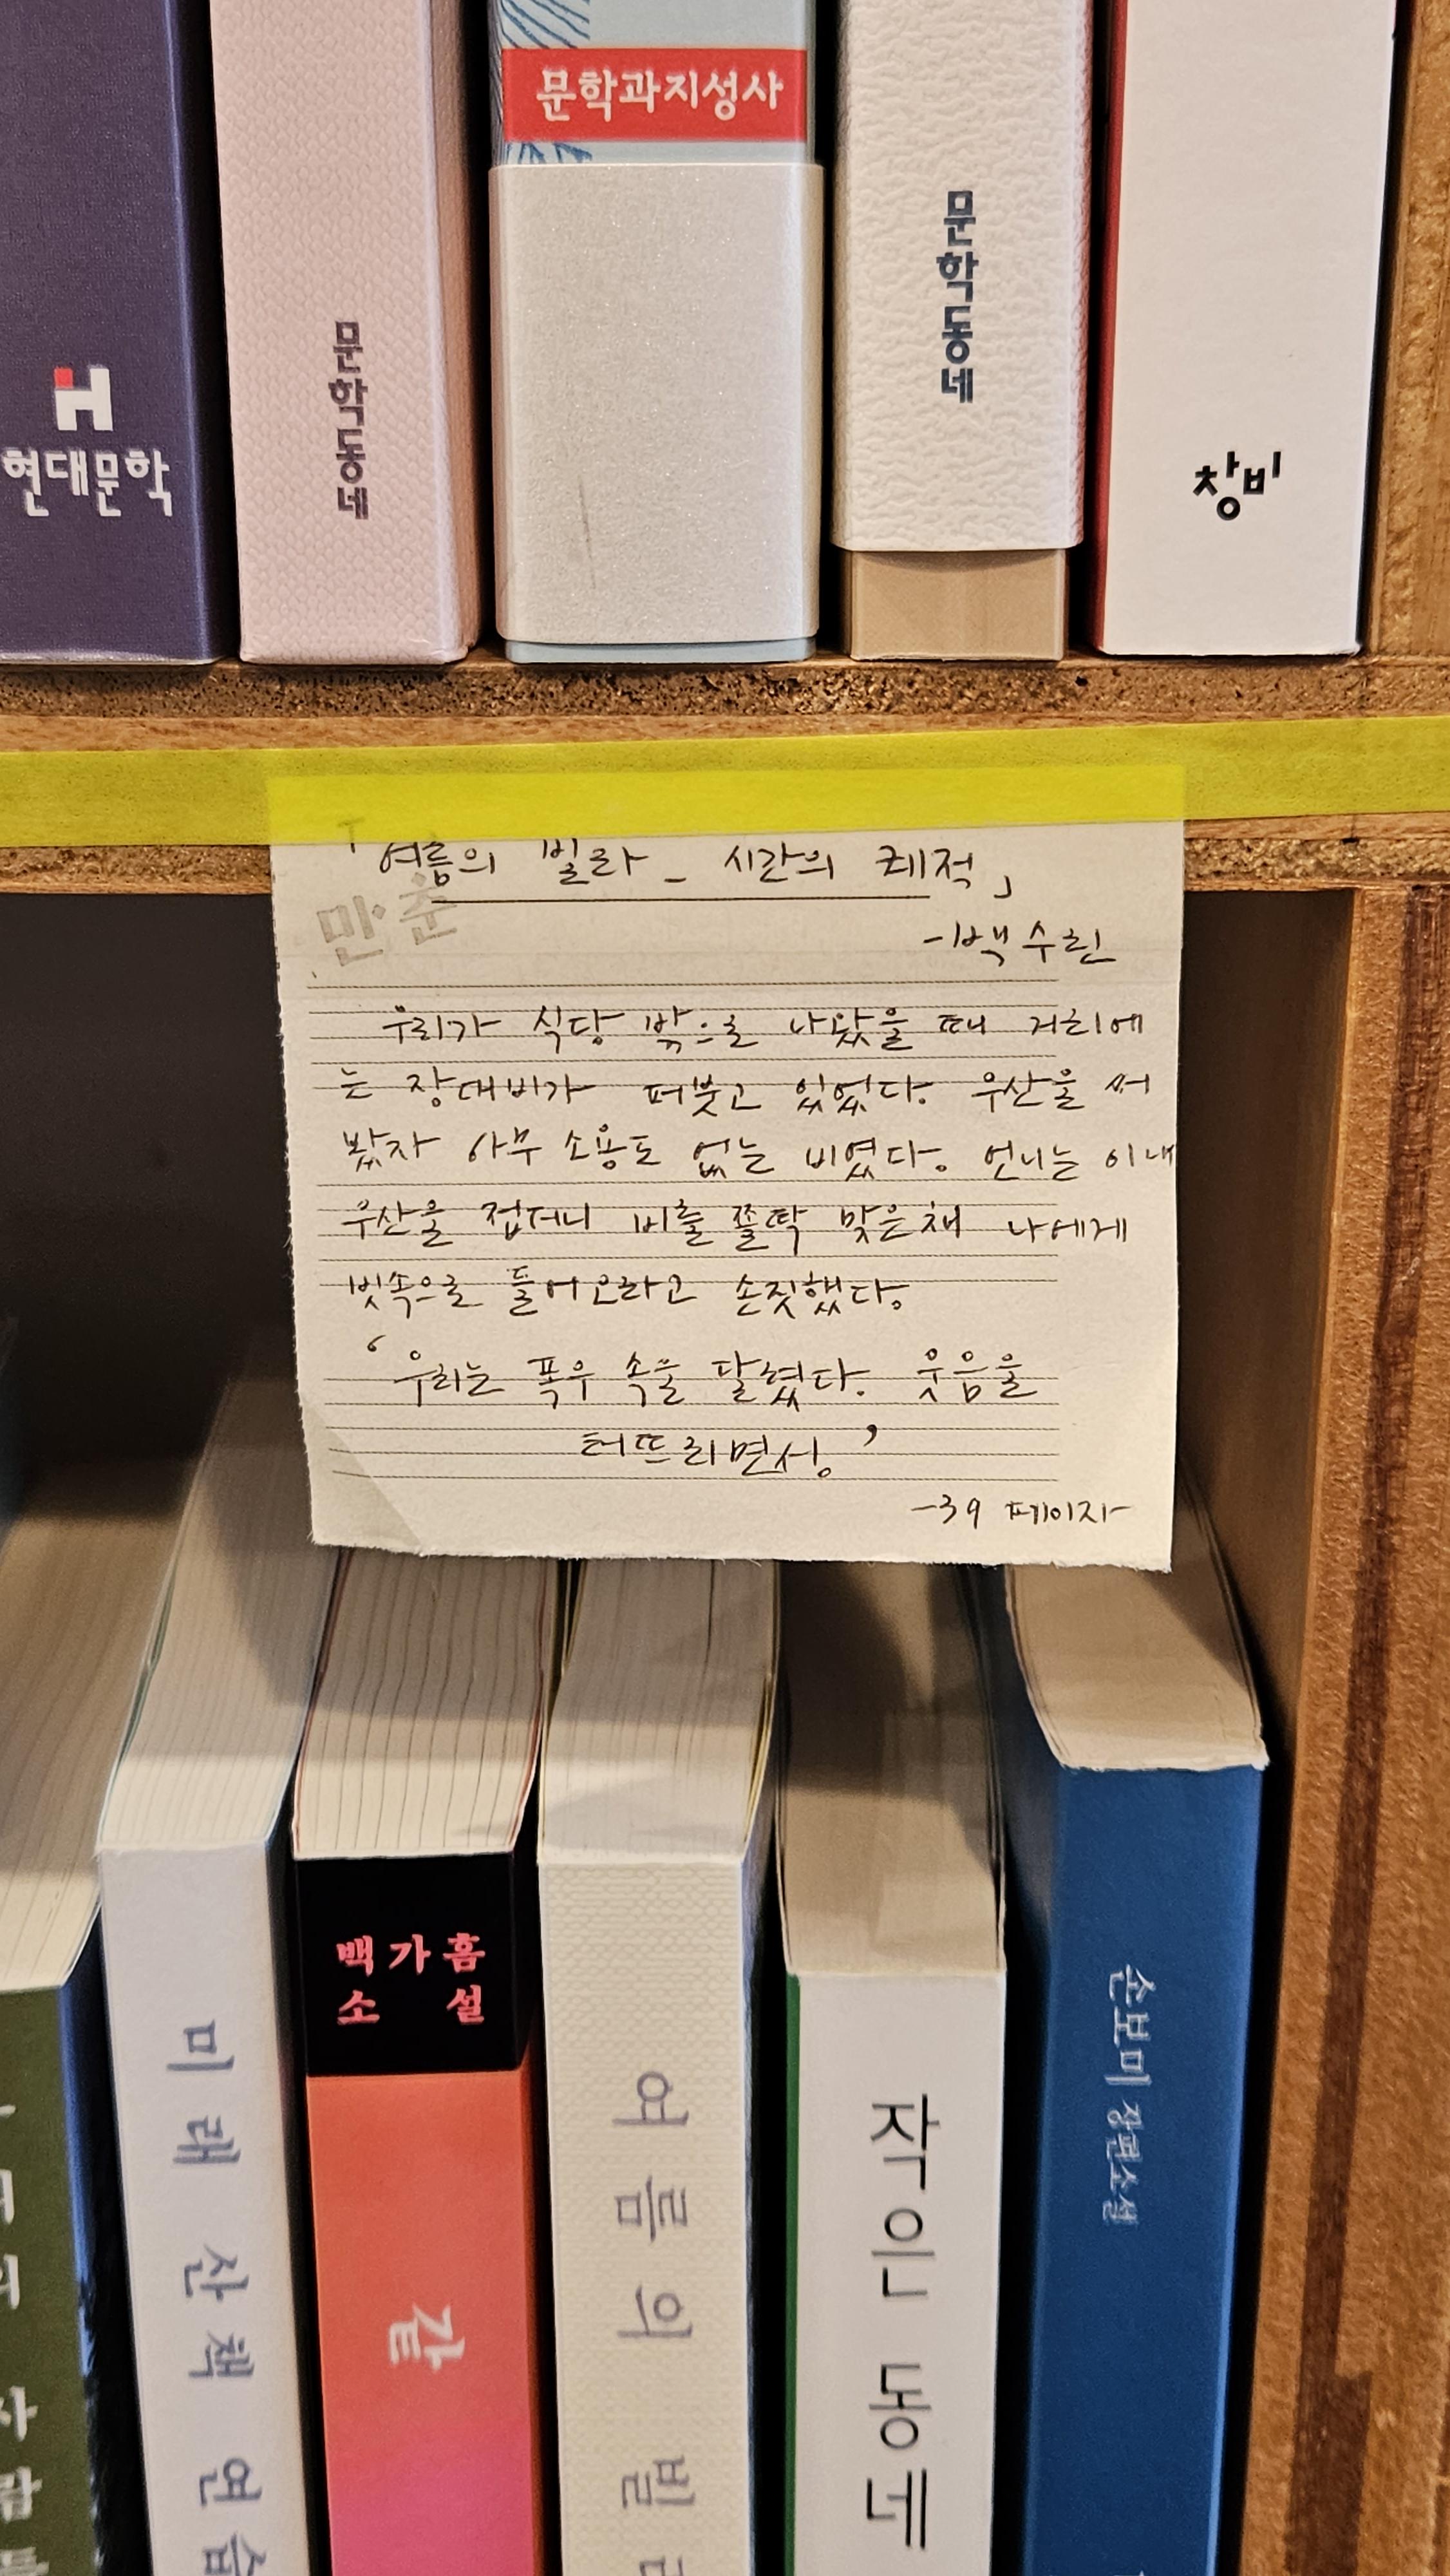 문학과지성사
문학동네
문학동네
현대문학
창비
「여름의 빌라 _ 시간의 궤적」
만춘
-백수린
우리가 식당 밖으로 나왔을 때 거리에
는 장대비가 퍼붓고 있었다. 우산을 써
봤자 아무 소용도 없는 비였다. 언니는 이내
우산을 접더니 비를 쫄딱 맞은채 나에게
빗속으로 들어오라고 손짓했다.
‘우리는 폭우 속을 달렸다. 웃음을
터뜨리면서.’
-39 페이지-
미래 산책 연습
백가흠
소설
같
여름의 빌라
작은 동네
손보미 장편소설